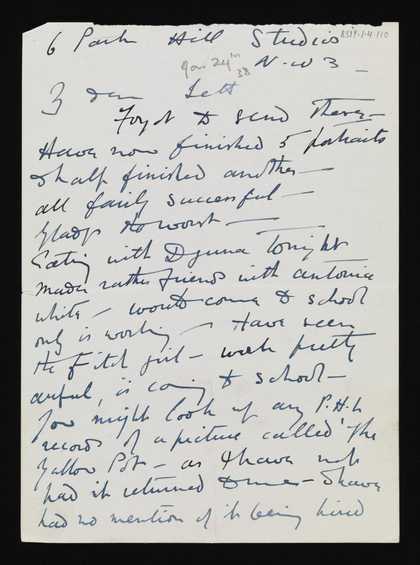 6 Park Hill Studios
8317.1.4.110
Jan 24th 38
N.W 3 —
Dear Lett
Forgot to send these —
Have now finished 5 portraits
& half finished another —
all fairly successful —
Gladys the worst —
Eating with Djuna Tonight
Made rather friends with Antonia
White — would come to school
only is working — Have seen
the Fitch girl — work pretty
awful, is coming to school —
You might look up any P.H.
records of a picture called 'The
Yallow Pot — as I have not
had it returned to me — I have
had no mention of its being hired